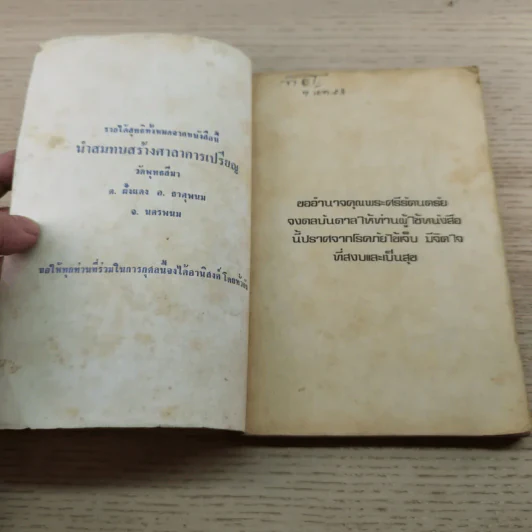 รายได้สุทธิทั้งหมดจากหนังสือนี้
นำสมทบสร้างศาลาการเปรียญ
วัดพุทธสีมา
ต. ฝั่งแดง อ. ธาตุพนม
จ. นครพนม
ขอให้ทุกท่านที่ร่วมในการกุศลนี้จงได้อานิสงค์โดยทั่วกัน
ขออำนาจคุณพระศรีรัตนตรัย
จงดลบันดาลให้ท่านผู้ใช้หนังสือ
นี้ปราศจากโรคภัยไข้เจ็บ มีจิตใจ
ที่สงบและเป็นสุข